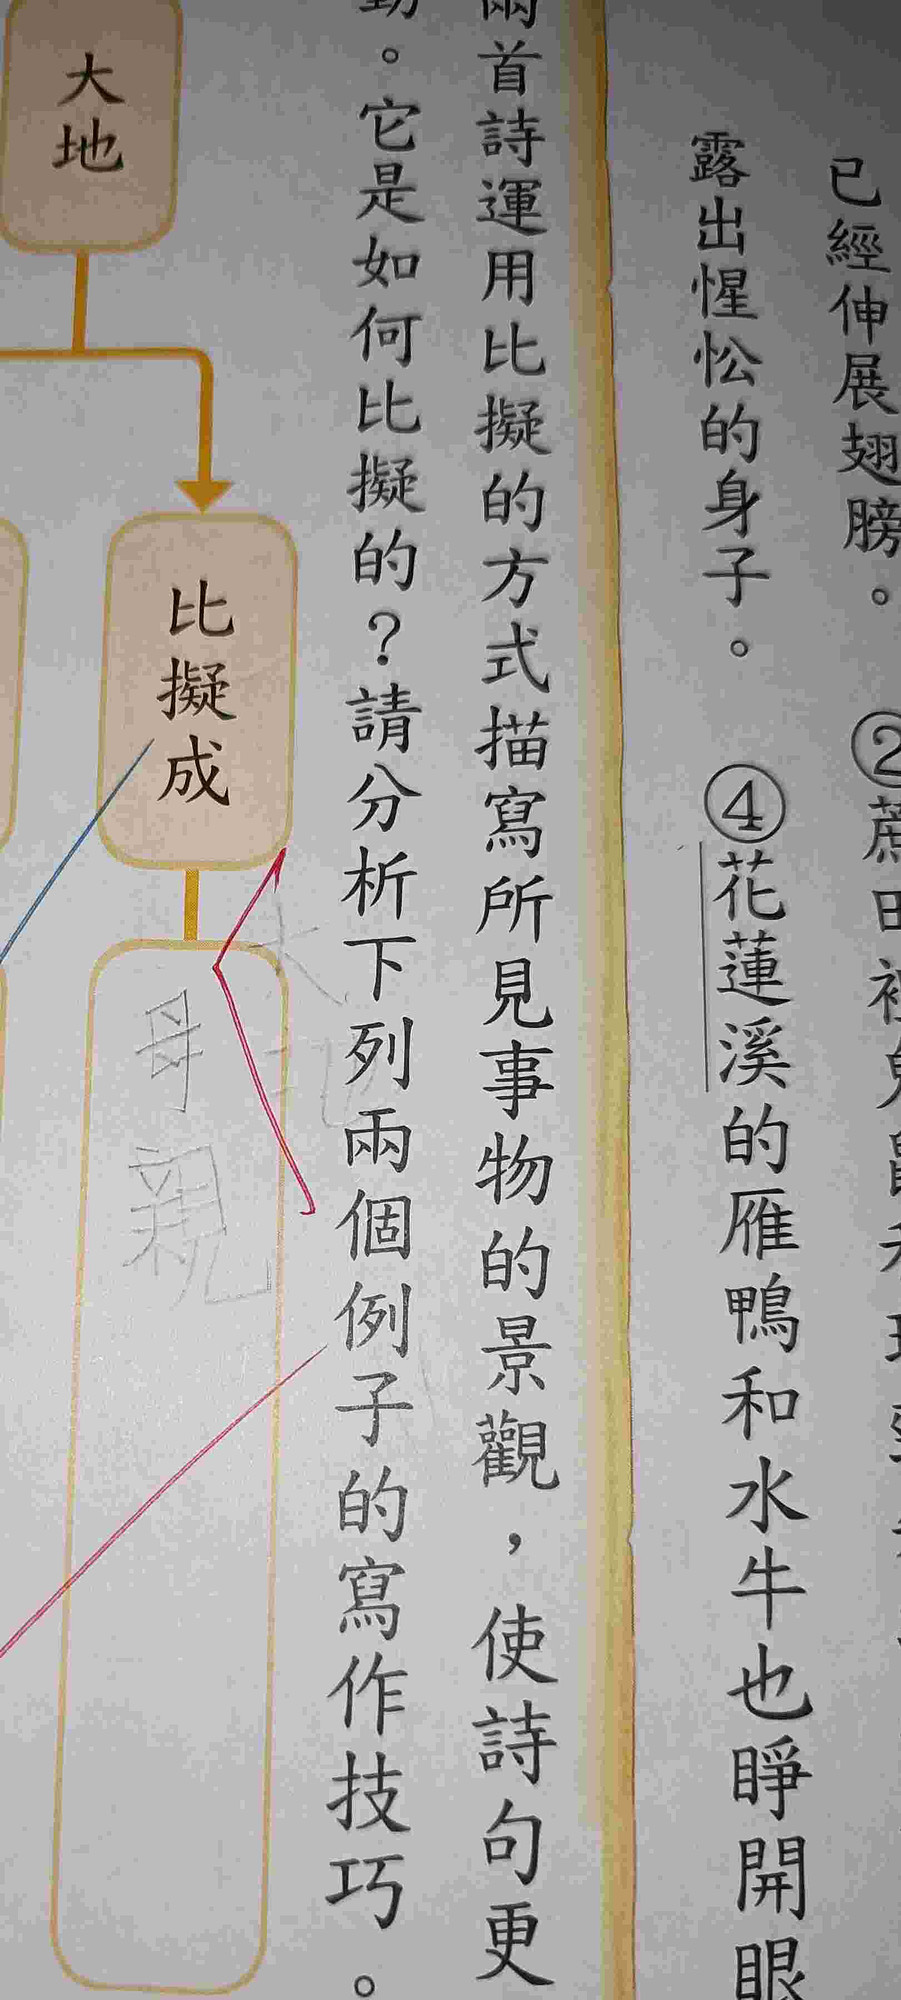 已經伸展翅膀。 ②蔗田裡
露出惺忪的身子。 ④花蓮溪的雁鴨和水牛也睜開眼
兩首詩運用比擬的方式描寫所見事物的景觀，使詩句更
動。它是如何比擬的？請分析下列兩個例子的寫作技巧。
大地
比擬成
大地
母親